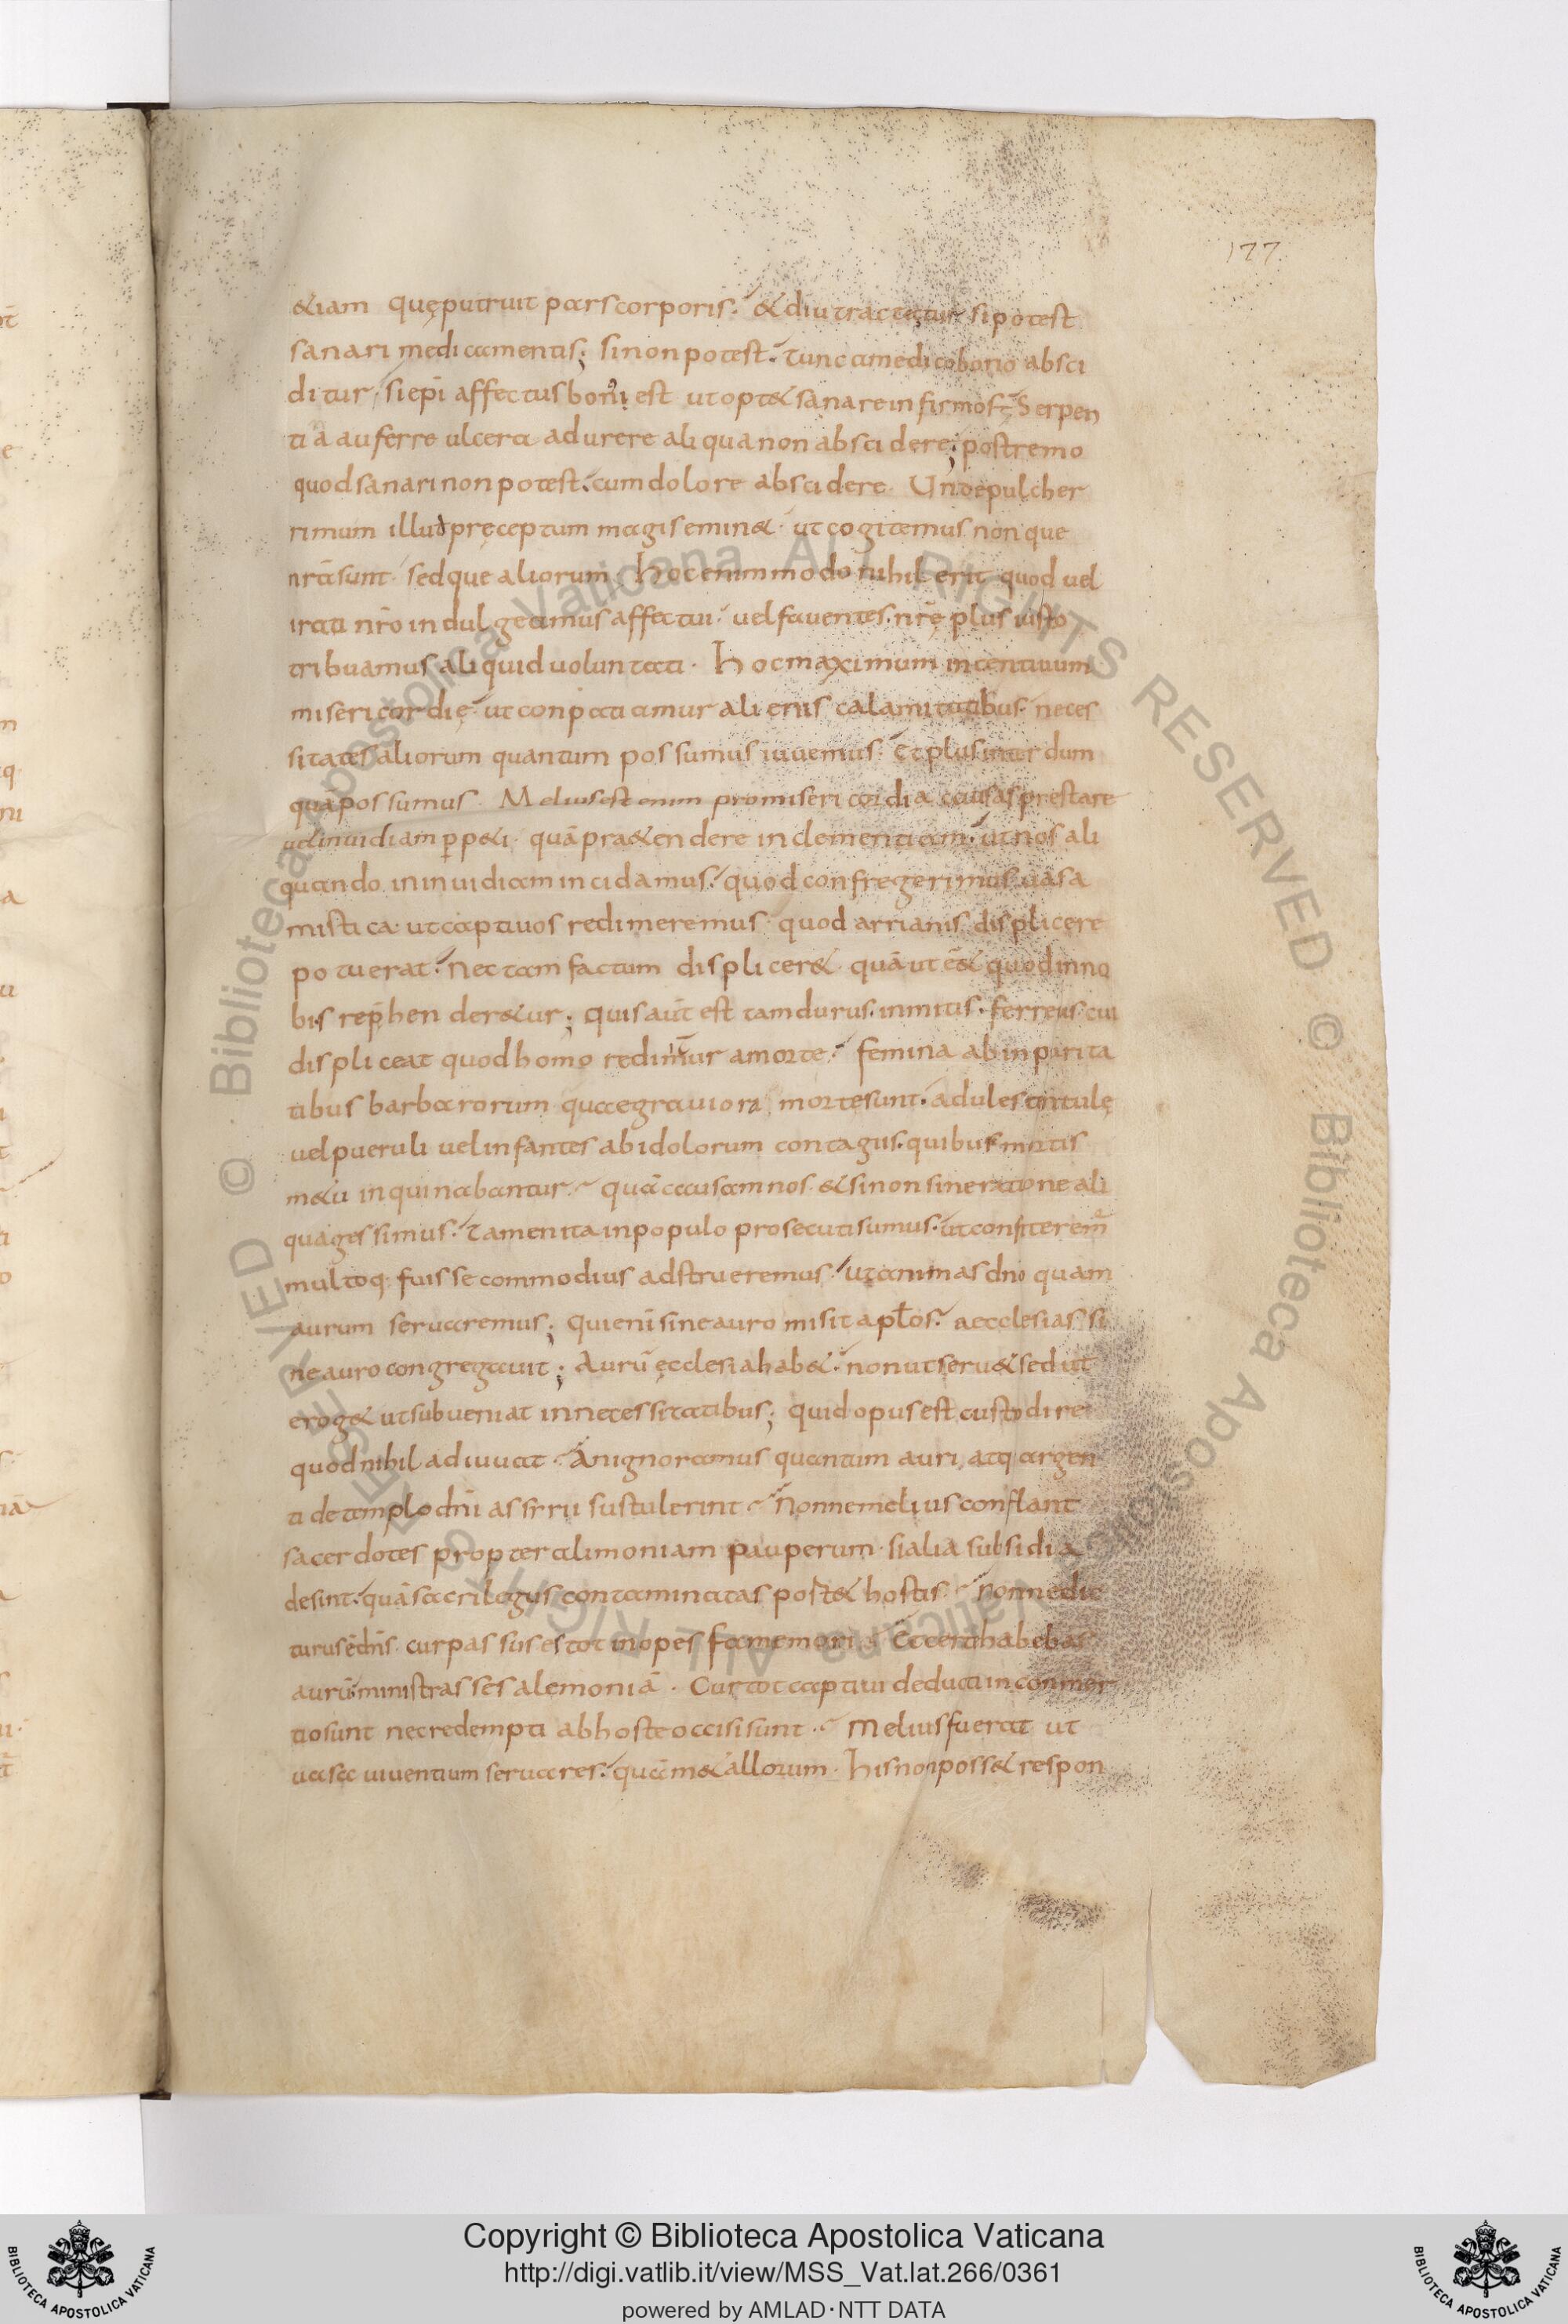 177
&iam quęputruit pars corporis. & diu tractatur si potest
sanari medicamentis; si non potest. tunc a medico bono absci
ditur. si epī affectus boni est ut opt& sanare infirmos. Serpen
tia auferre ulcera adurere aliqua non abscidere; postremo
quod sanari non potest. cum dolore abscidere. Unde pulcher
rimum illud pręceptum magis emin& ut cogitemus non que
nrā sunt. sed que aliorum. hoc enim modo nihil erit quod vel
irati nrō indulgeamus affectui. vel faventes nrę̄ plus iusto
tribuamus aliquid voluntati. hoc maximum incentivum
misericordię. ut conpatiamur alienis calamitatibus. neces
sitates aliorum quantum possumus iuvemus. Et plus interdum
quā possumus. Melius est enim pro misericordia causas prestare
vel invidiam ꝑp&i. quā pra&endere inclementiam. ut nos ali
quando in invidiam incidamus. quod confregerimus vasa
mistica ut captivos redimeremus. quod arrianis displicere
potuerat. Nec tam factum displicer& quā ut eē& quod in no
bis rep̄hender&ur; Quis aūt est tam durus. inmitis. ferreus. cui
displiceat quod homo redimitur a morte. femina ab inpurita
tibus barbarorum quae graviora morte sunt. adulescentulę
vel pueruli vel infantes ab idolorum contagiis. quibus mortis
m&u inquinabantur. Quā causam nos &si non sine ratione ali
qua gessimus. Tamen ita in populo prosecuti sumus. ut confiterem̄
multoq; fuisse commodius adstrueremus. ut animas dnō quam
aurum servaremus; Qui eni sine auro misit apłos. aecclesias si
ne auro congregavit; Aurū ęcclesia hab&. non ut serv& sed ut
erog& ut subveniat in necessitatibus; quid opus est custodire
quod nihil adiuvat. An ignoramus quantum auri atq argen
ti de templo dn̄i assyrii sustulerint. Nonne melius conflant
sacerdotes propter alimoniam pauperum. si alia subsidia
desint. quā sacrilegus contaminatas port& hostis. Nonne dic
turus ē dn̄s. cur passus es tot inopes fame mori. Et certe habebas
aurū. ministrasses alemoniā. Cur tot captivi deducti in conmer
tio sunt nec redempti ab hoste occisi sunt. Melius fuerat ut
vasa viventium servares. quā m&allorum. his non poss& respon
Copyright © Biblioteca Apostolica Vaticana
http://digi.vatlib.it/view/MSS_Vat.lat.266/0361
powered by AMLAD·NTT DATA